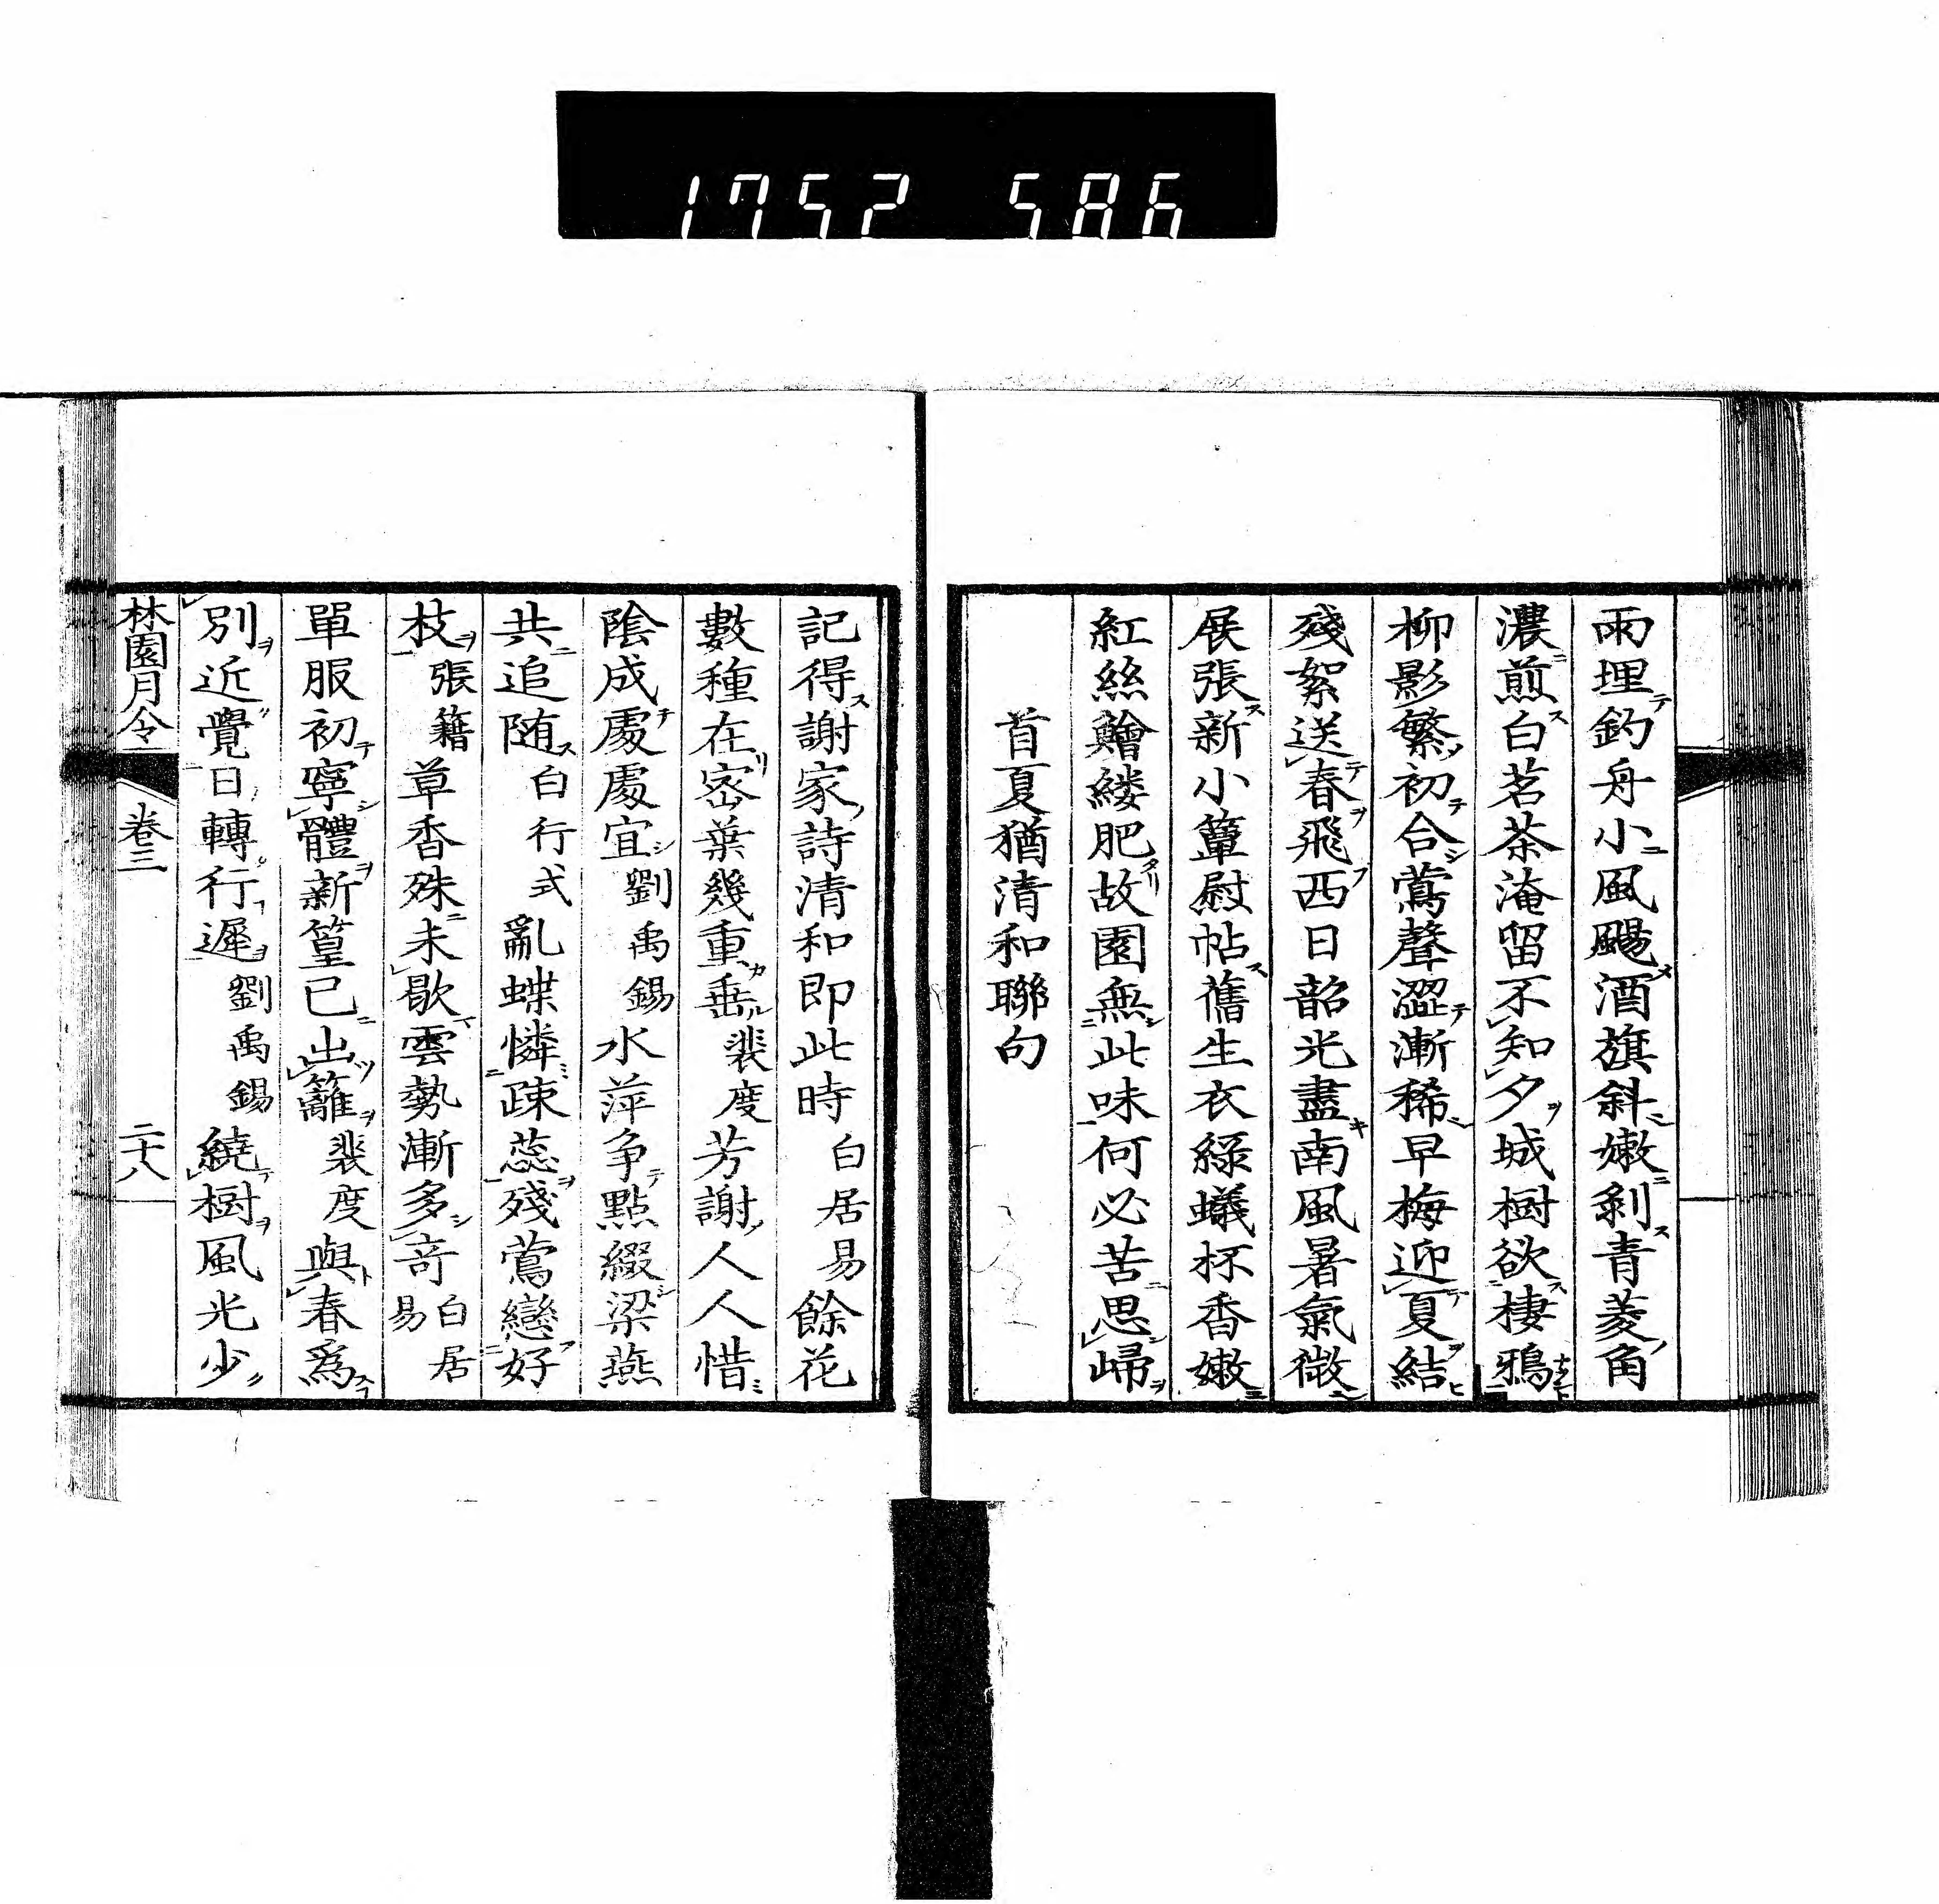 1752 586
雨埋釣舟小風颺酒旗斜嫩剝青菱角
濃煎白茗茶淹留不知夕城樹欲棲鴉
柳影繁初合鶯聲澀漸稀早梅迎夏結
殘絮送春飛西日韶光盡南風暑氣微
展張新小簟慰帖舊生衣綠蟻杯香嫩
紅絲鱠縷肥故園無此味何必苦思歸
首夏猶清和聯句
記得謝家詩清和即此時白居易餘花
數種在密葉幾重垂裴度芳謝人人惜
陰成處處宜劉禹錫水萍争點綴梁燕
共追随白行式亂蝶憐疎蕊殘鶯戀好
枝張籍草香殊未歇雲勢漸多竒白居易
單服初寧體新篁已出籬裴度與春爲
別近覺日轉行遲劉禹錫繞樹風光少
林園月令 卷三 二十八